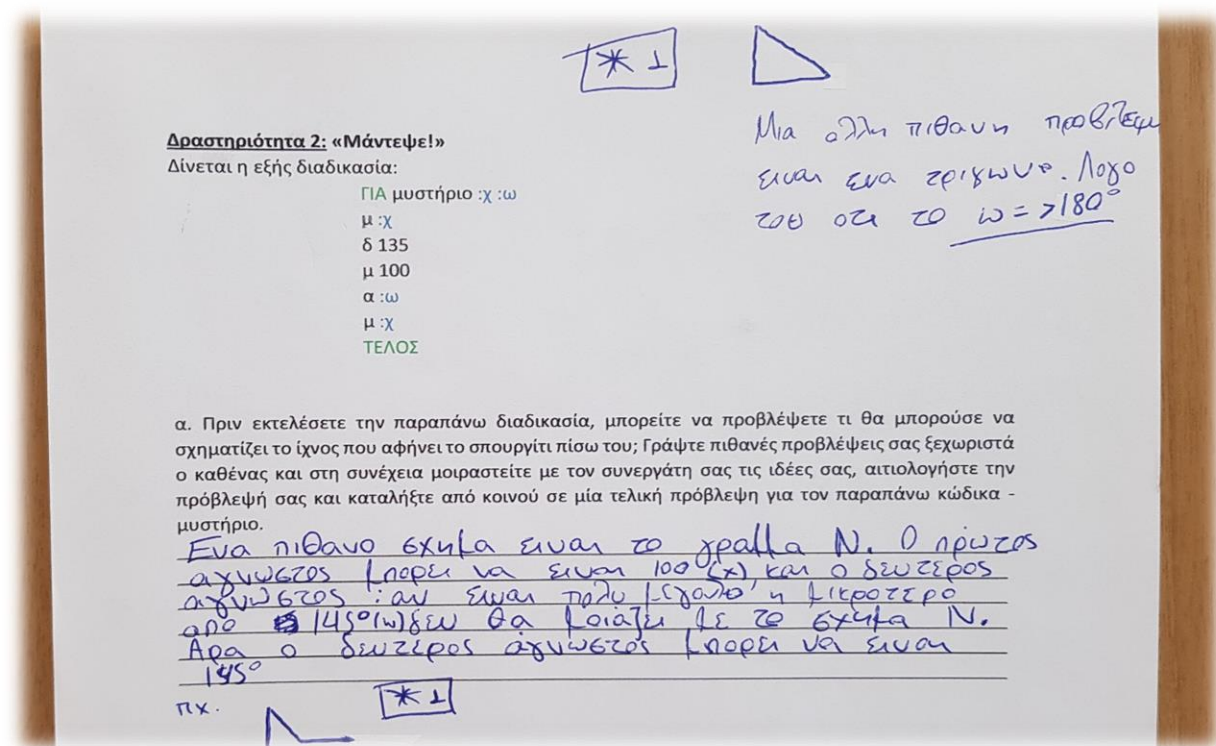 * 1
Μια αλλη πιθανη προβλεψη
ειναι ενα τριγωνο. Λογο
του οτι το ω = >180°
Δραστηριότητα 2: «Μάντεψε!»
Δίνεται η εξής διαδικασία:
ΓΙΑ μυστήριο :χ :ω
μ :χ
δ 135
μ 100
α :ω
μ :χ
ΤΕΛΟΣ
α. Πριν εκτελέσετε την παραπάνω διαδικασία, μπορείτε να προβλέψετε τι θα μπορούσε να
σχηματίζει το ίχνος που αφήνει το σπουργίτι πίσω του; Γράψτε πιθανές προβλέψεις σας ξεχωριστά
ο καθένας και στη συνέχεια μοιραστείτε με τον συνεργάτη σας τις ιδέες σας, αιτιολογήστε την
πρόβλεψή σας και καταλήξτε από κοινού σε μία τελική πρόβλεψη για τον παραπάνω κώδικα -
μυστήριο.
Ενα πιθανο σχημα ειναι το γραμμα Ν. Ο πρώτος
αγνωστος μπορει να ειναι 100 (χ), και ο δευτερος
αγνωστος : αν ειναι πολυ μεγαλο, η μικροτερο
απο 145°(ω) δεν θα μοιάζει με το σχημα Ν.
Αρα ο δευτερος αγνωστος μπορει να ειναι
145°
πχ.
* 1